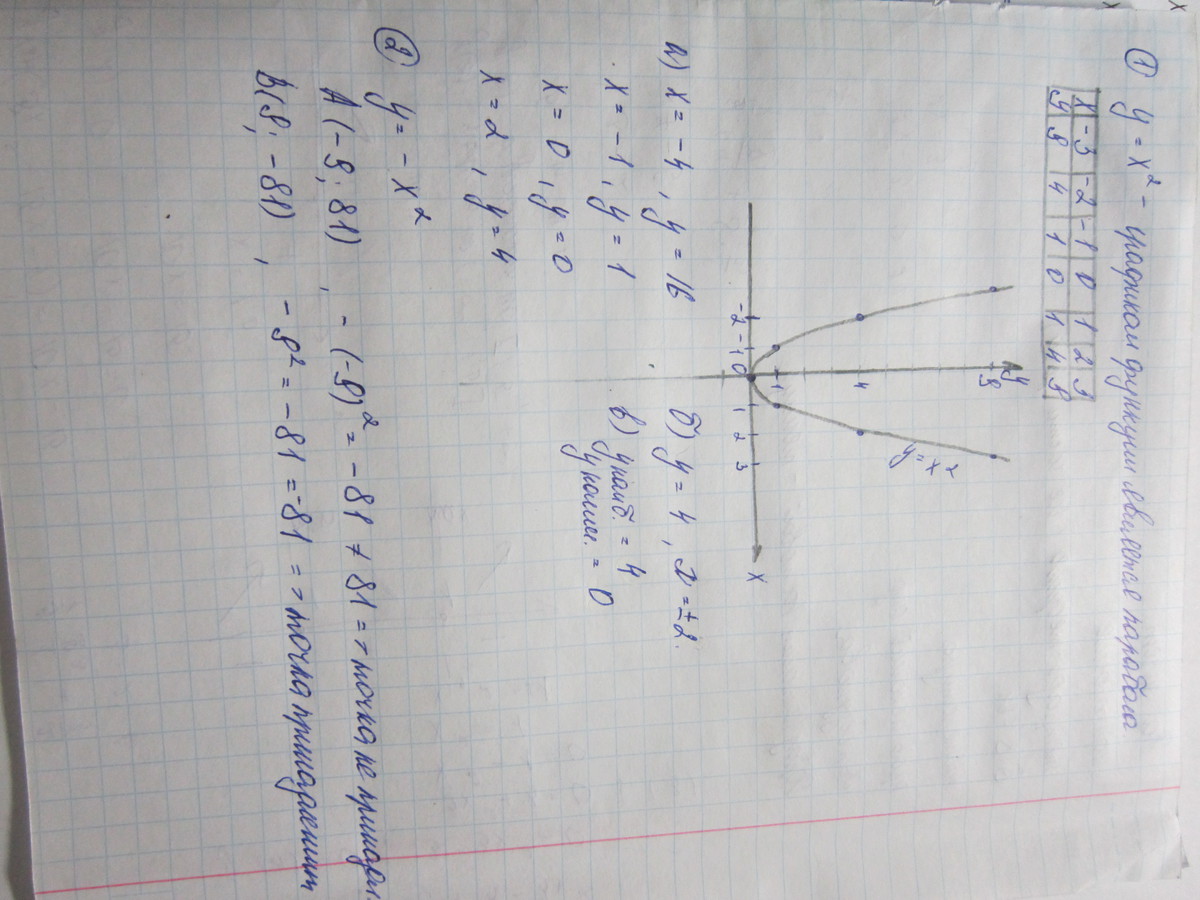 ① y = x² - графиком функции является парабола
x -3 -2 -1 0 1 2 3
y 9 4 1 0 1 4 9
y
9
4
1
-2 -1 0 1 2 3
x
y = x²
а) x = -4, y = 16
x = -1, y = 1
x = 0, y = 0
x = 2, y = 4
б) y = 4, x = ±2
в) y наиб. = 4
y наим. = 0
② y = -x²
A (-9; 81), -(-9)² = -81 ≠ 81 => точка не принадл.
B (9; -81), -9² = -81 = -81 => точка принадлежит